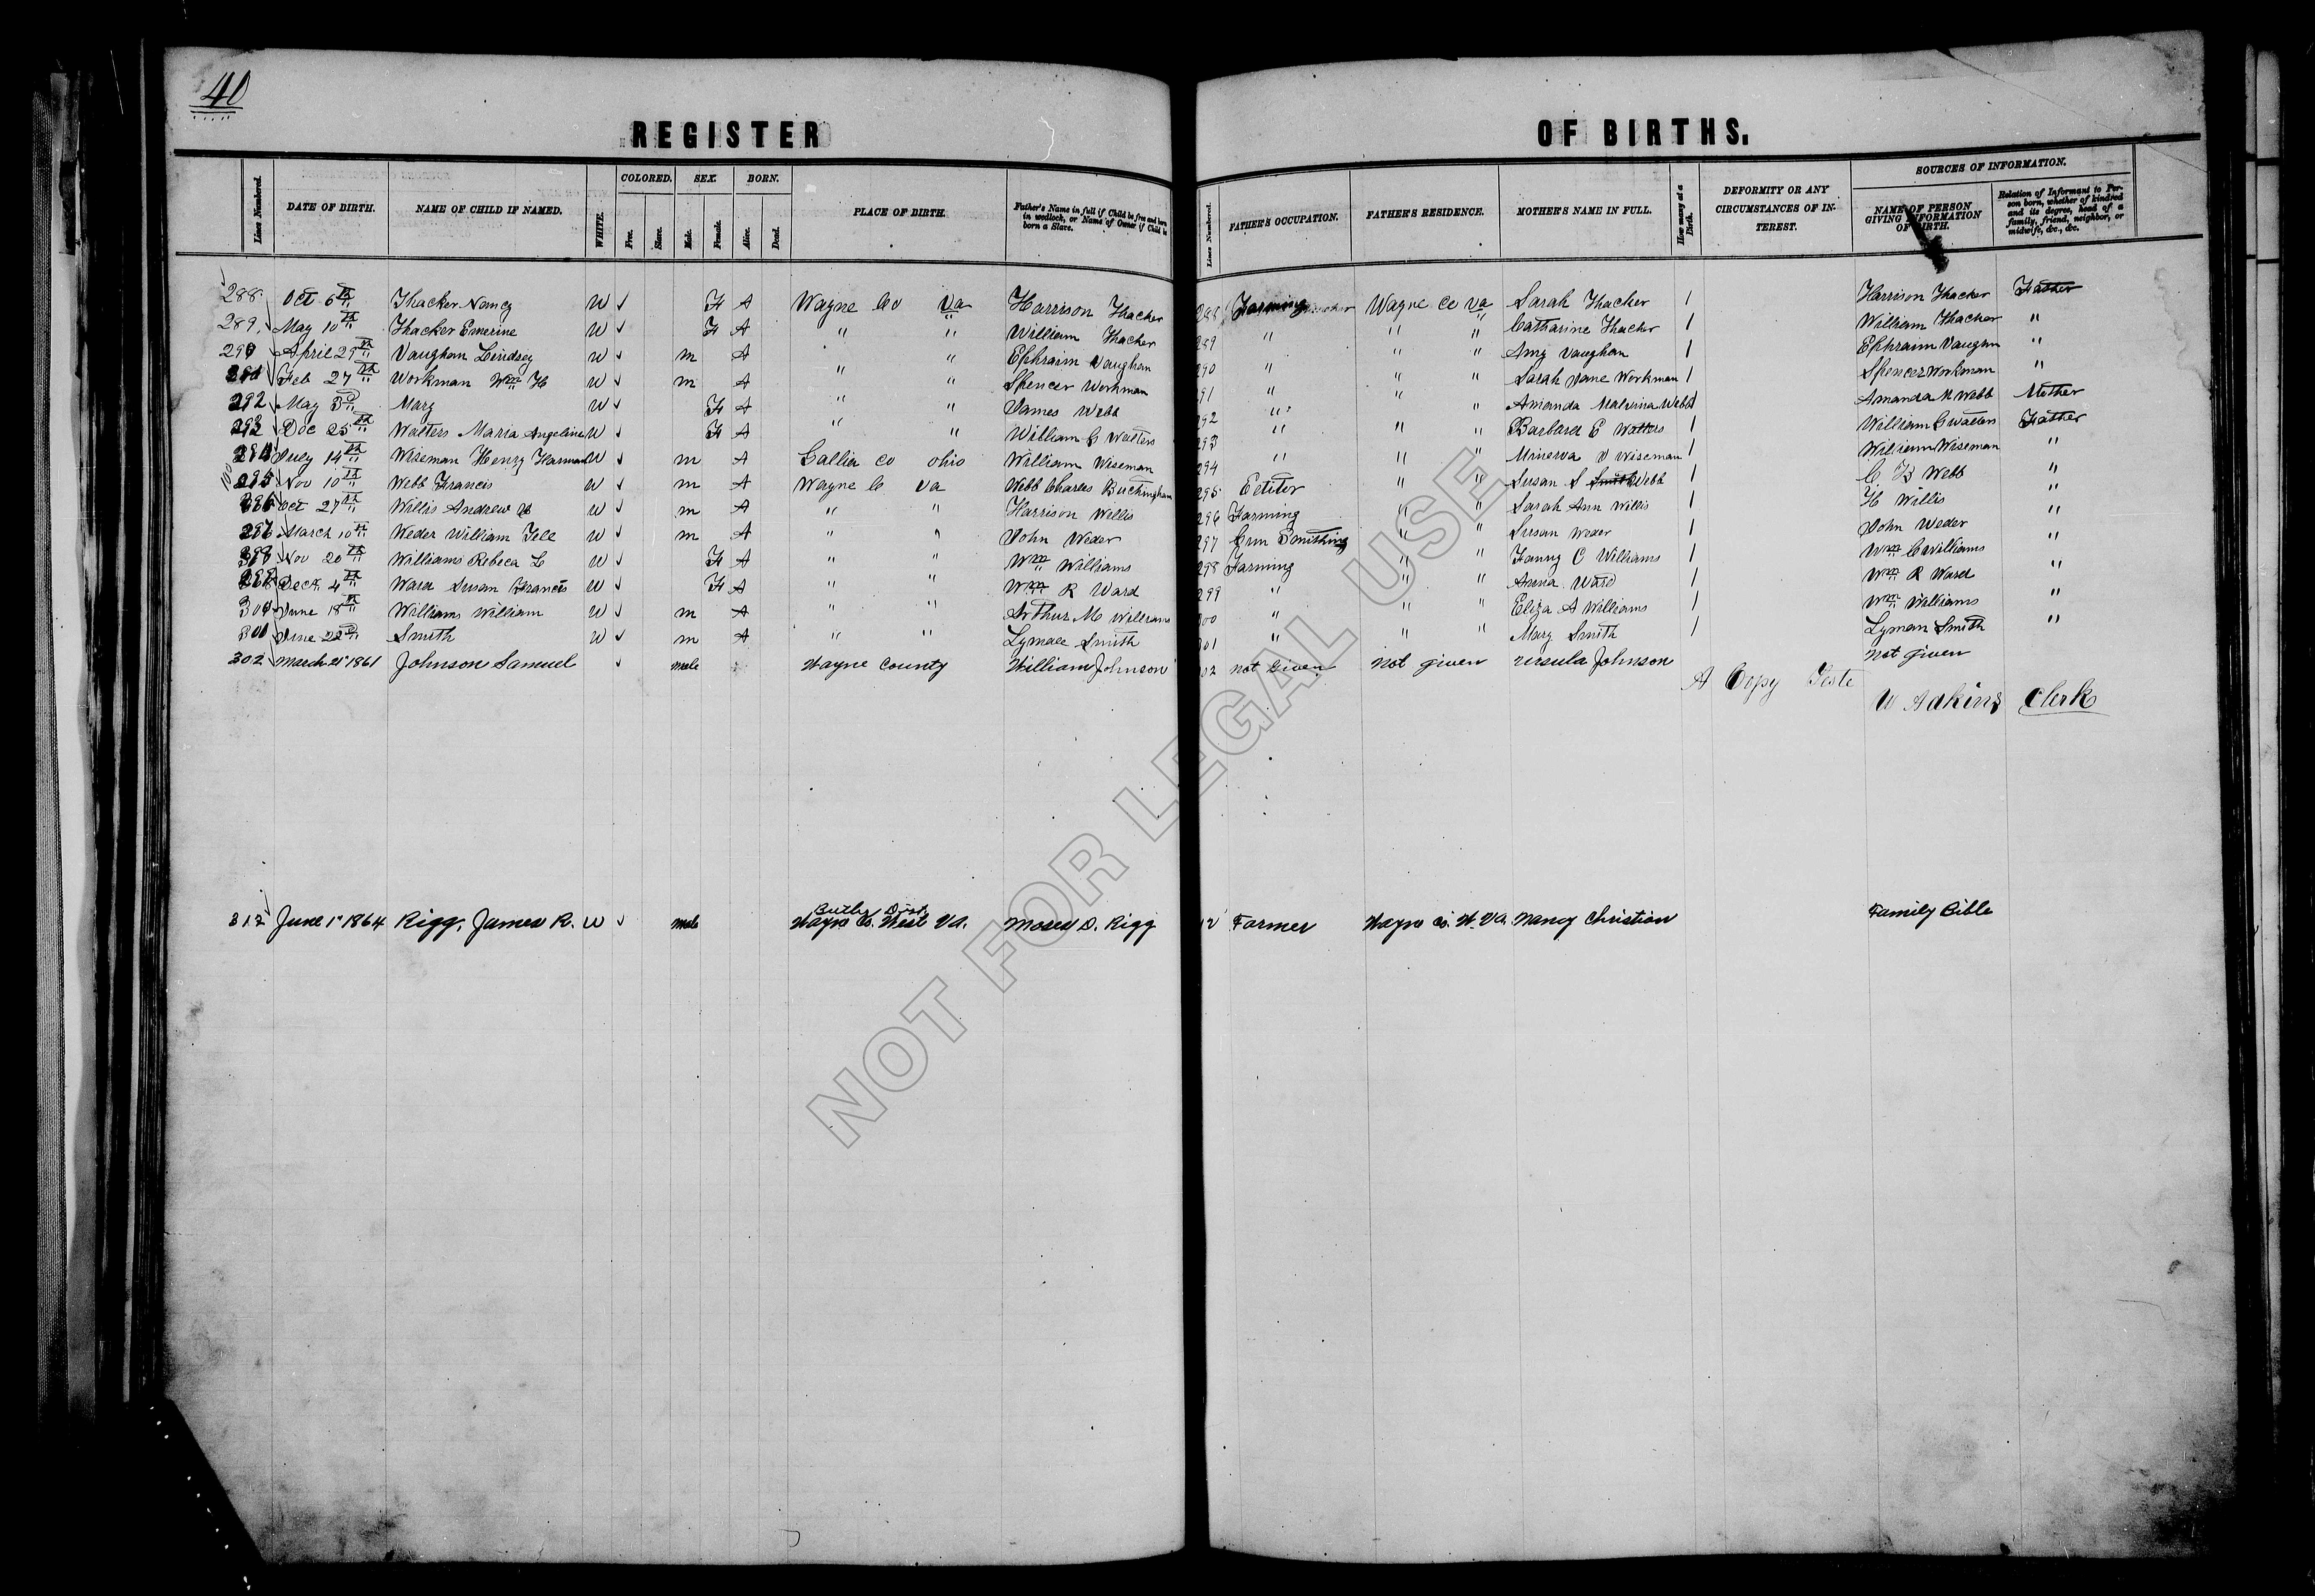 40
REGISTER OF BIRTHS.
Lines Numbered. DATE OF BIRTH. NAME OF CHILD IF NAMED. WHITE. COLORED. Free. Slave. SEX. Male. Female. BORN. Alive. Dead. PLACE OF BIRTH. Father's Name in full if Child be free and born in wedlock, or Name of Owner if Child be born a Slave. Lines Numbered. FATHER'S OCCUPATION. FATHER'S RESIDENCE. MOTHER'S NAME IN FULL. How many at a Birth. DEFORMITY OR ANY CIRCUMSTANCES OF INTEREST. SOURCES OF INFORMATION. NAME OF PERSON GIVING INFORMATION OF BIRTH. Relation of Informant to Person born, whether of kindred and its degree, head of a family, friend, neighbor, or midwife, &c., &c.
288 Oct 6th Thacker Nancy W ✓ F A Wayne Co Va Harrison Thacker 288 Farming Wayne Co Va Sarah Thacker 1 Harrison Thacker Father
289. May 10th Thacker Emerine W ✓ F A " " William Thacker 289 " " " Catharine Thacker 1 William Thacker "
290 April 29th Vaughan Lindsey W ✓ m A " " Ephraim Vaughan 290 " " " Amy Vaughan 1 Ephraim Vaughn "
291 Feb 27th Workman Wm H W ✓ m A " Spencer Workman 91 " " " Sarah Jane Workman 1 Spencer Workman "
292 May 3d Mary W ✓ F A " " James Webb 292 " " Amanda Malvina Webb 1 Amanda M Webb Mother
293 Dec 25th Watters Maria Angeline W ✓ F A " " William G Watters 293 " " " Barbara E Watters 1 William G Watters Father
294 July 14th Wiseman Henry Harman W ✓ m A Gallia Co Ohio William Wiseman 294 " " " Minerva V Wiseman 1 William Wiseman "
295 Nov 10th Webb Francis W ✓ m A Wayne C Va Webb Charles Buckingham 295 Editer " " Susan S Webb 1 C B Webb "
296 Oct 27th Willis Andrew W ✓ m A " " Harrison Willis 296 Farming " " Sarah Ann Willis 1 H Willis "
297 March 10th Weder William Tell W ✓ m A " " John Weder 297 Gun Smithing " " Susan Weder 1 John Weder "
298 Nov 20th Williams Rebeca L W ✓ F A " " Wm Williams 298 Farming " " Fanny C Williams 1 Wm C Williams "
299 Dec 4th Ward Susan Francis W ✓ F A " " Wm R Ward 299 " " " Anna Ward 1 Wm R Ward "
300 June 18th Williams William W ✓ m A " " Arthur M Williams 300 " " " Eliza A Williams 1 Wm Williams "
301 June 22d Smith W ✓ m A " " Lyman Smith 301 " " " Mary Smith 1 Lyman Smith "
302 March 21" 1861 Johnson Samuel ✓ male Wayne County William Johnson 02 not Given Not given Ursula Johnson Not given
A Copy Teste
W Adkins Clerk
312 June 1" 1864 Rigg, James R. W ✓ male Butler Dist Wayne Co. West Va. Moses S. Rigg 12 Farmer Wayne Co. W. Va. Nancy Christian Family Bible
NOT FOR LEGAL USE